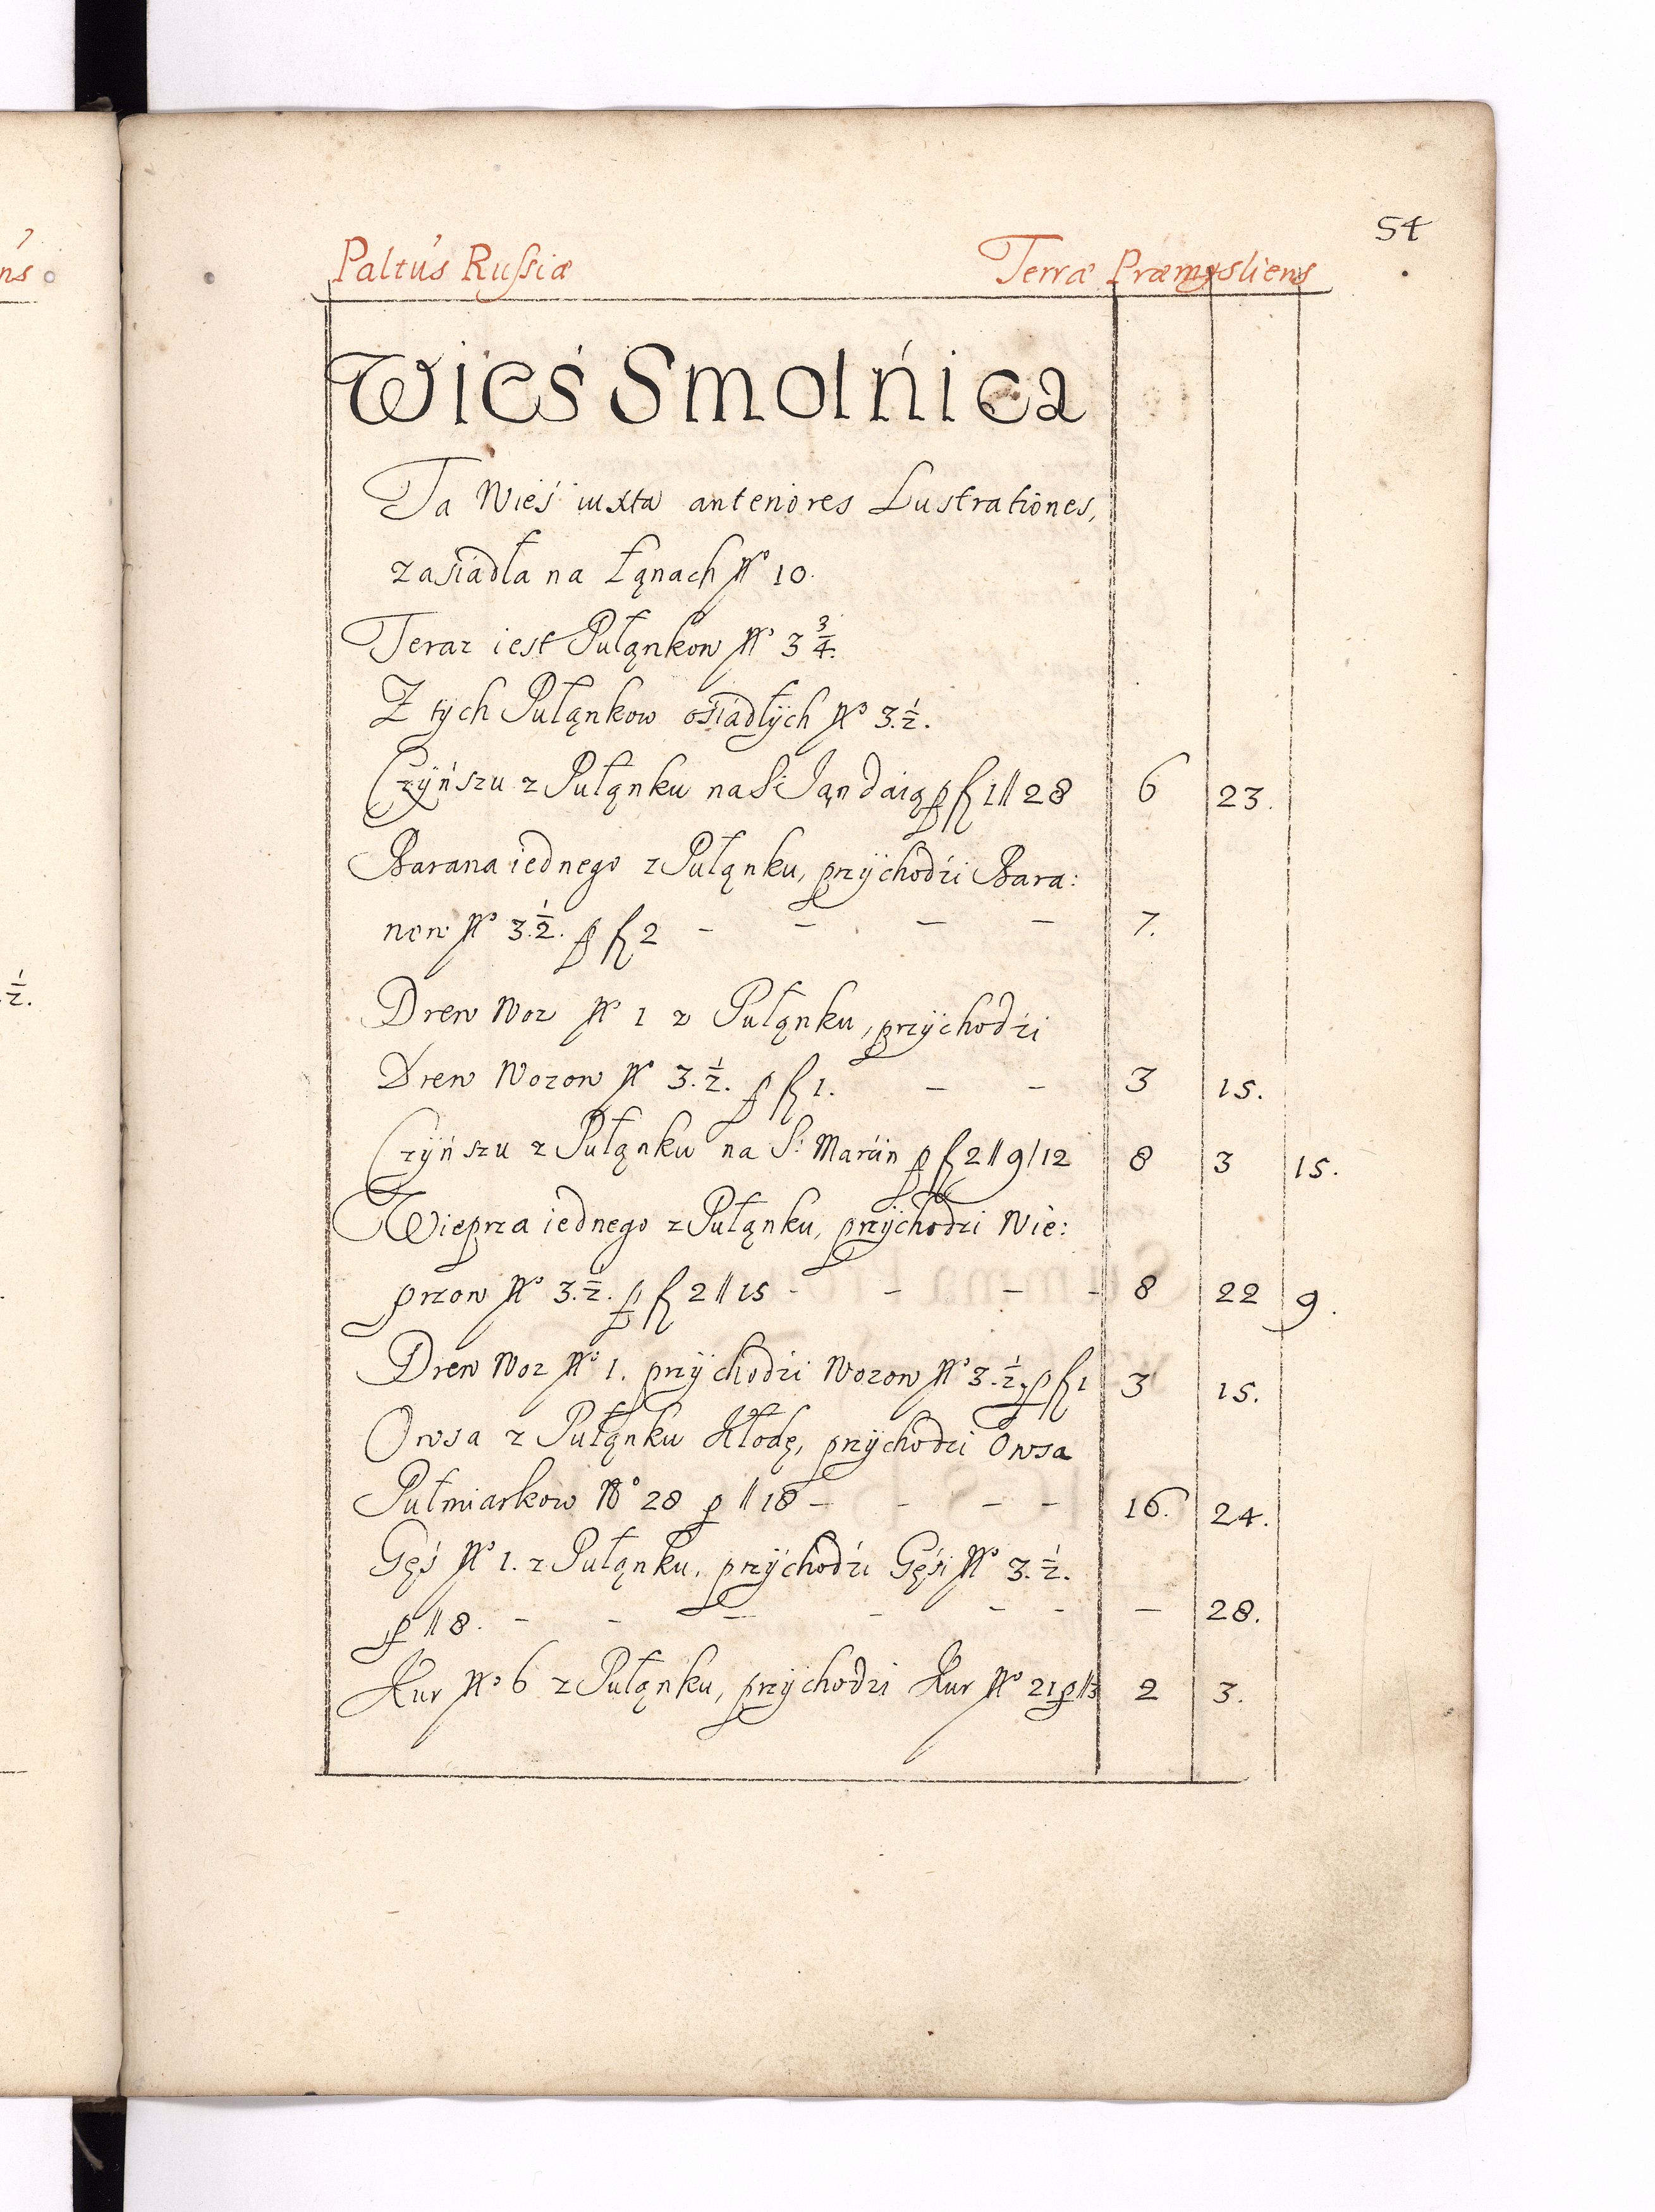 54
Paltus Russiæ Terræ Præmysliens
Wieś Smolnica
Ta Wieś iuxta anteriores Lustrationes,
zasiadła na Łąnach Nº 10.
Teraz iest Pułąnkow Nº 3 3/4.
Z tych Pułąnkow osiadłÿch Nº 3.1/2.
Czÿńszu z Pułąnku na S: Jąn daią p fl 1 || 28 6 23.
Barana iednego z Pułąnku, przÿchodźi Bara:
now Nº 3.1/2. p fl 2 - - - - 7.
Drew Woz Nº 1 z Pułąnku, przÿchodźi
Drew Wozow Nº 3.1/2. p fl 1. - - 3 15.
Czÿńszu z Pułąnku na S: Marćin p fl 2 || 9 | 12 8 3 15.
Wieprza iednego z Pułąnku, przÿchodzi Wie:
przow Nº 3.1/2. p fl 2 || 15 - - - - 8 22 9.
Drew Woz Nº 1. przÿchodźi Wozow Nº 3.1/2. p fl 1 3 15.
Owsa z Pułąnku Kłodę, przÿchodzi Owsa
Pułmiarkow Nº 28 p || 18 - - - - 16. 24.
Gęś Nº 1. z Pułąnku, przÿchodźi Gęśi Nº 3.1/2.
p || 8. - - - - - - - 28.
Kur Nº 6 z Pułąnku, przÿchodzi Kur Nº 21 p || 3 2 3.